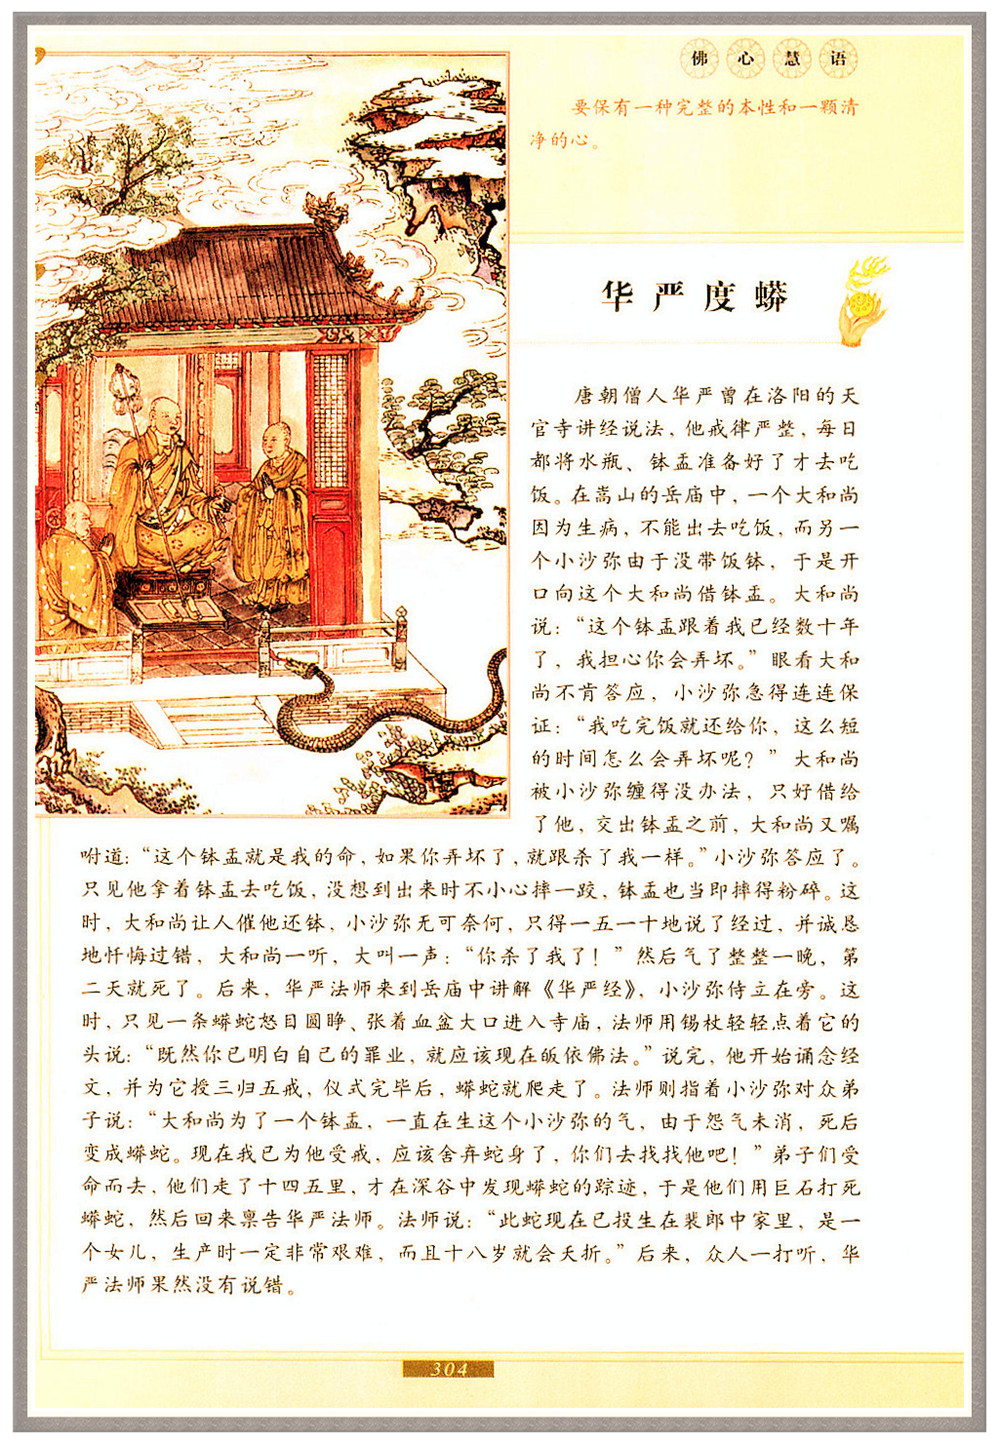 佛心慧语
要保有一种完整的本性和一颗清
净的心。
华严度蟒
唐朝僧人华严曾在洛阳的天
官寺讲经说法，他戒律严整，每日
都将水瓶、钵盂准备好了才去吃
饭。在嵩山的岳庙中，一个大和尚
因为生病，不能出去吃饭，而另一
个小沙弥由于没带饭钵，于是开
口向这个大和尚借钵盂。大和尚
说：“这个钵盂跟着我已经数十年
了，我担心你会弄坏。”眼看大和
尚不肯答应，小沙弥急得连连保
证：“我吃完饭就还给你，这么短
的时间怎么会弄坏呢？”大和尚
被小沙弥缠得没办法，只好借给
了他，交出钵盂之前，大和尚又嘱
咐道：“这个钵盂就是我的命，如果你弄坏了，就跟杀了我一样。”小沙弥答应了。
只见他拿着钵盂去吃饭，没想到出来时不小心摔一跤，钵盂也当即摔得粉碎。这
时，大和尚让人催他还钵，小沙弥无可奈何，只得一五一十地说了经过，并诚恳
地忏悔过错，大和尚一听，大叫一声：“你杀了我了！”然后气了整整一晚，第
二天就死了。后来，华严法师来到岳庙中讲解《华严经》，小沙弥侍立在旁。这
时，只见一条蟒蛇怒目圆睁、张着血盆大口进入寺庙，法师用锡杖轻轻点着它的
头说：“既然你已明白自己的罪业，就应该现在皈依佛法。”说完，他开始诵念经
文，并为它授三归五戒，仪式完毕后，蟒蛇就爬走了。法师则指着小沙弥对众弟
子说：“大和尚为了一个钵盂，一直在生这个小沙弥的气，由于怨气未消，死后
变成蟒蛇。现在我已为他受戒，应该舍弃蛇身了，你们去找找他吧！”弟子们受
命而去，他们走了十四五里，才在深谷中发现蟒蛇的踪迹，于是他们用巨石打死
蟒蛇，然后回来禀告华严法师。法师说：“此蛇现在已投生在裴郎中家里，是一
个女儿，生产时一定非常艰难，而且十八岁就会夭折。”后来，众人一打听，华
严法师果然没有说错。
304